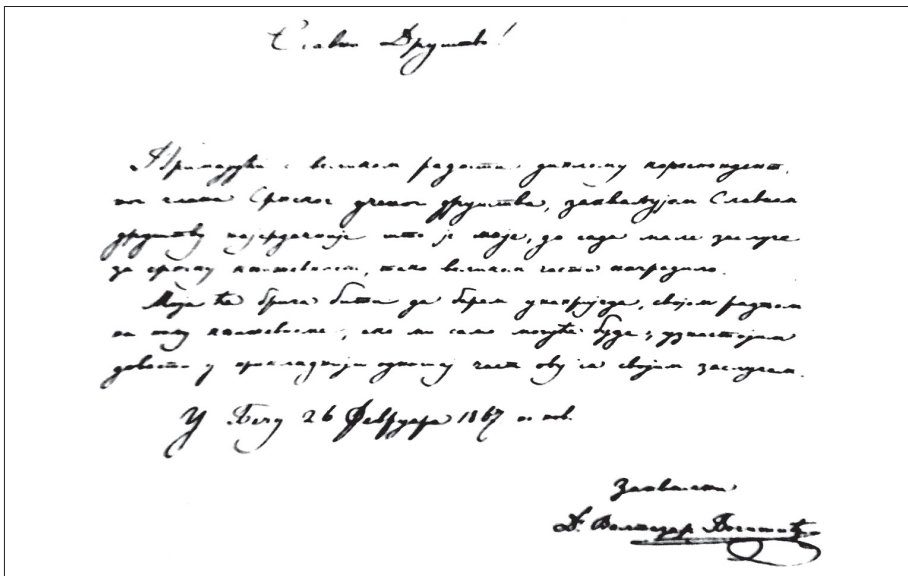 Славно Друштво!
Примајући с великом радости диплому кореспондент.
ног члана Српског ученог друштва, захваљујем Славном
друштву најсрдачније што је моје, до сада мале заслуге
за српску књижевност, тако великом части наградило.
Моја ће брига бити да барем унапријед, својом радњом
на пољу књижевноме, ако ми само могуће буде, узнастојим
довести у прикладнији одношај част ову са својим заслугам.
У Бечу 26 Февруара 1867 по нов.
Захвални
Dr. Валтазар Богишић